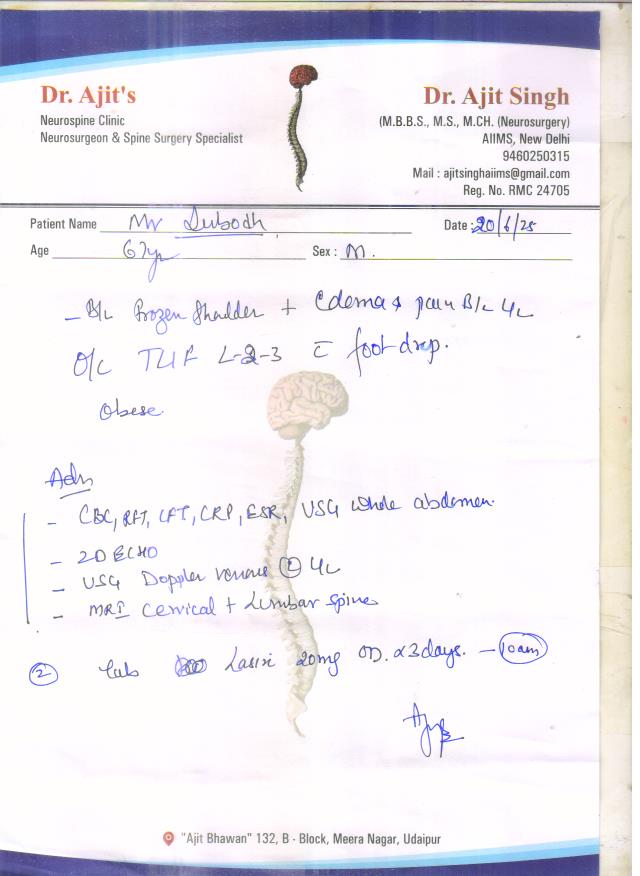 Dr. Ajit's
Neurospine Clinic
Neurosurgeon & Spine Surgery Specialist
Dr. Ajit Singh
(M.B.B.S., M.S., M.CH. (Neurosurgery)
AIIMS, New Delhi
9460250315
Mail : ajitsinghaiims@gmail.com
Reg. No. RMC 24705
Patient Name Mr Subodh Date : 20/6/25
Age 67yr Sex : M.
- B/L Frozen Shoulder + Edema & pain B/L
O/C TLIF L-2-3 c̄ foot drop.
Obese
Adv
- CBC, RFT, LFT, CRP, ESR, USG whole abdomen.
- 2D ECHO
- USG Doppler venous
- MRI Cervical + Lumbar Spine
② Tab Lasix 20mg OD. x3days. - 10am
"Ajit Bhawan" 132, B - Block, Meera Nagar, Udaipur